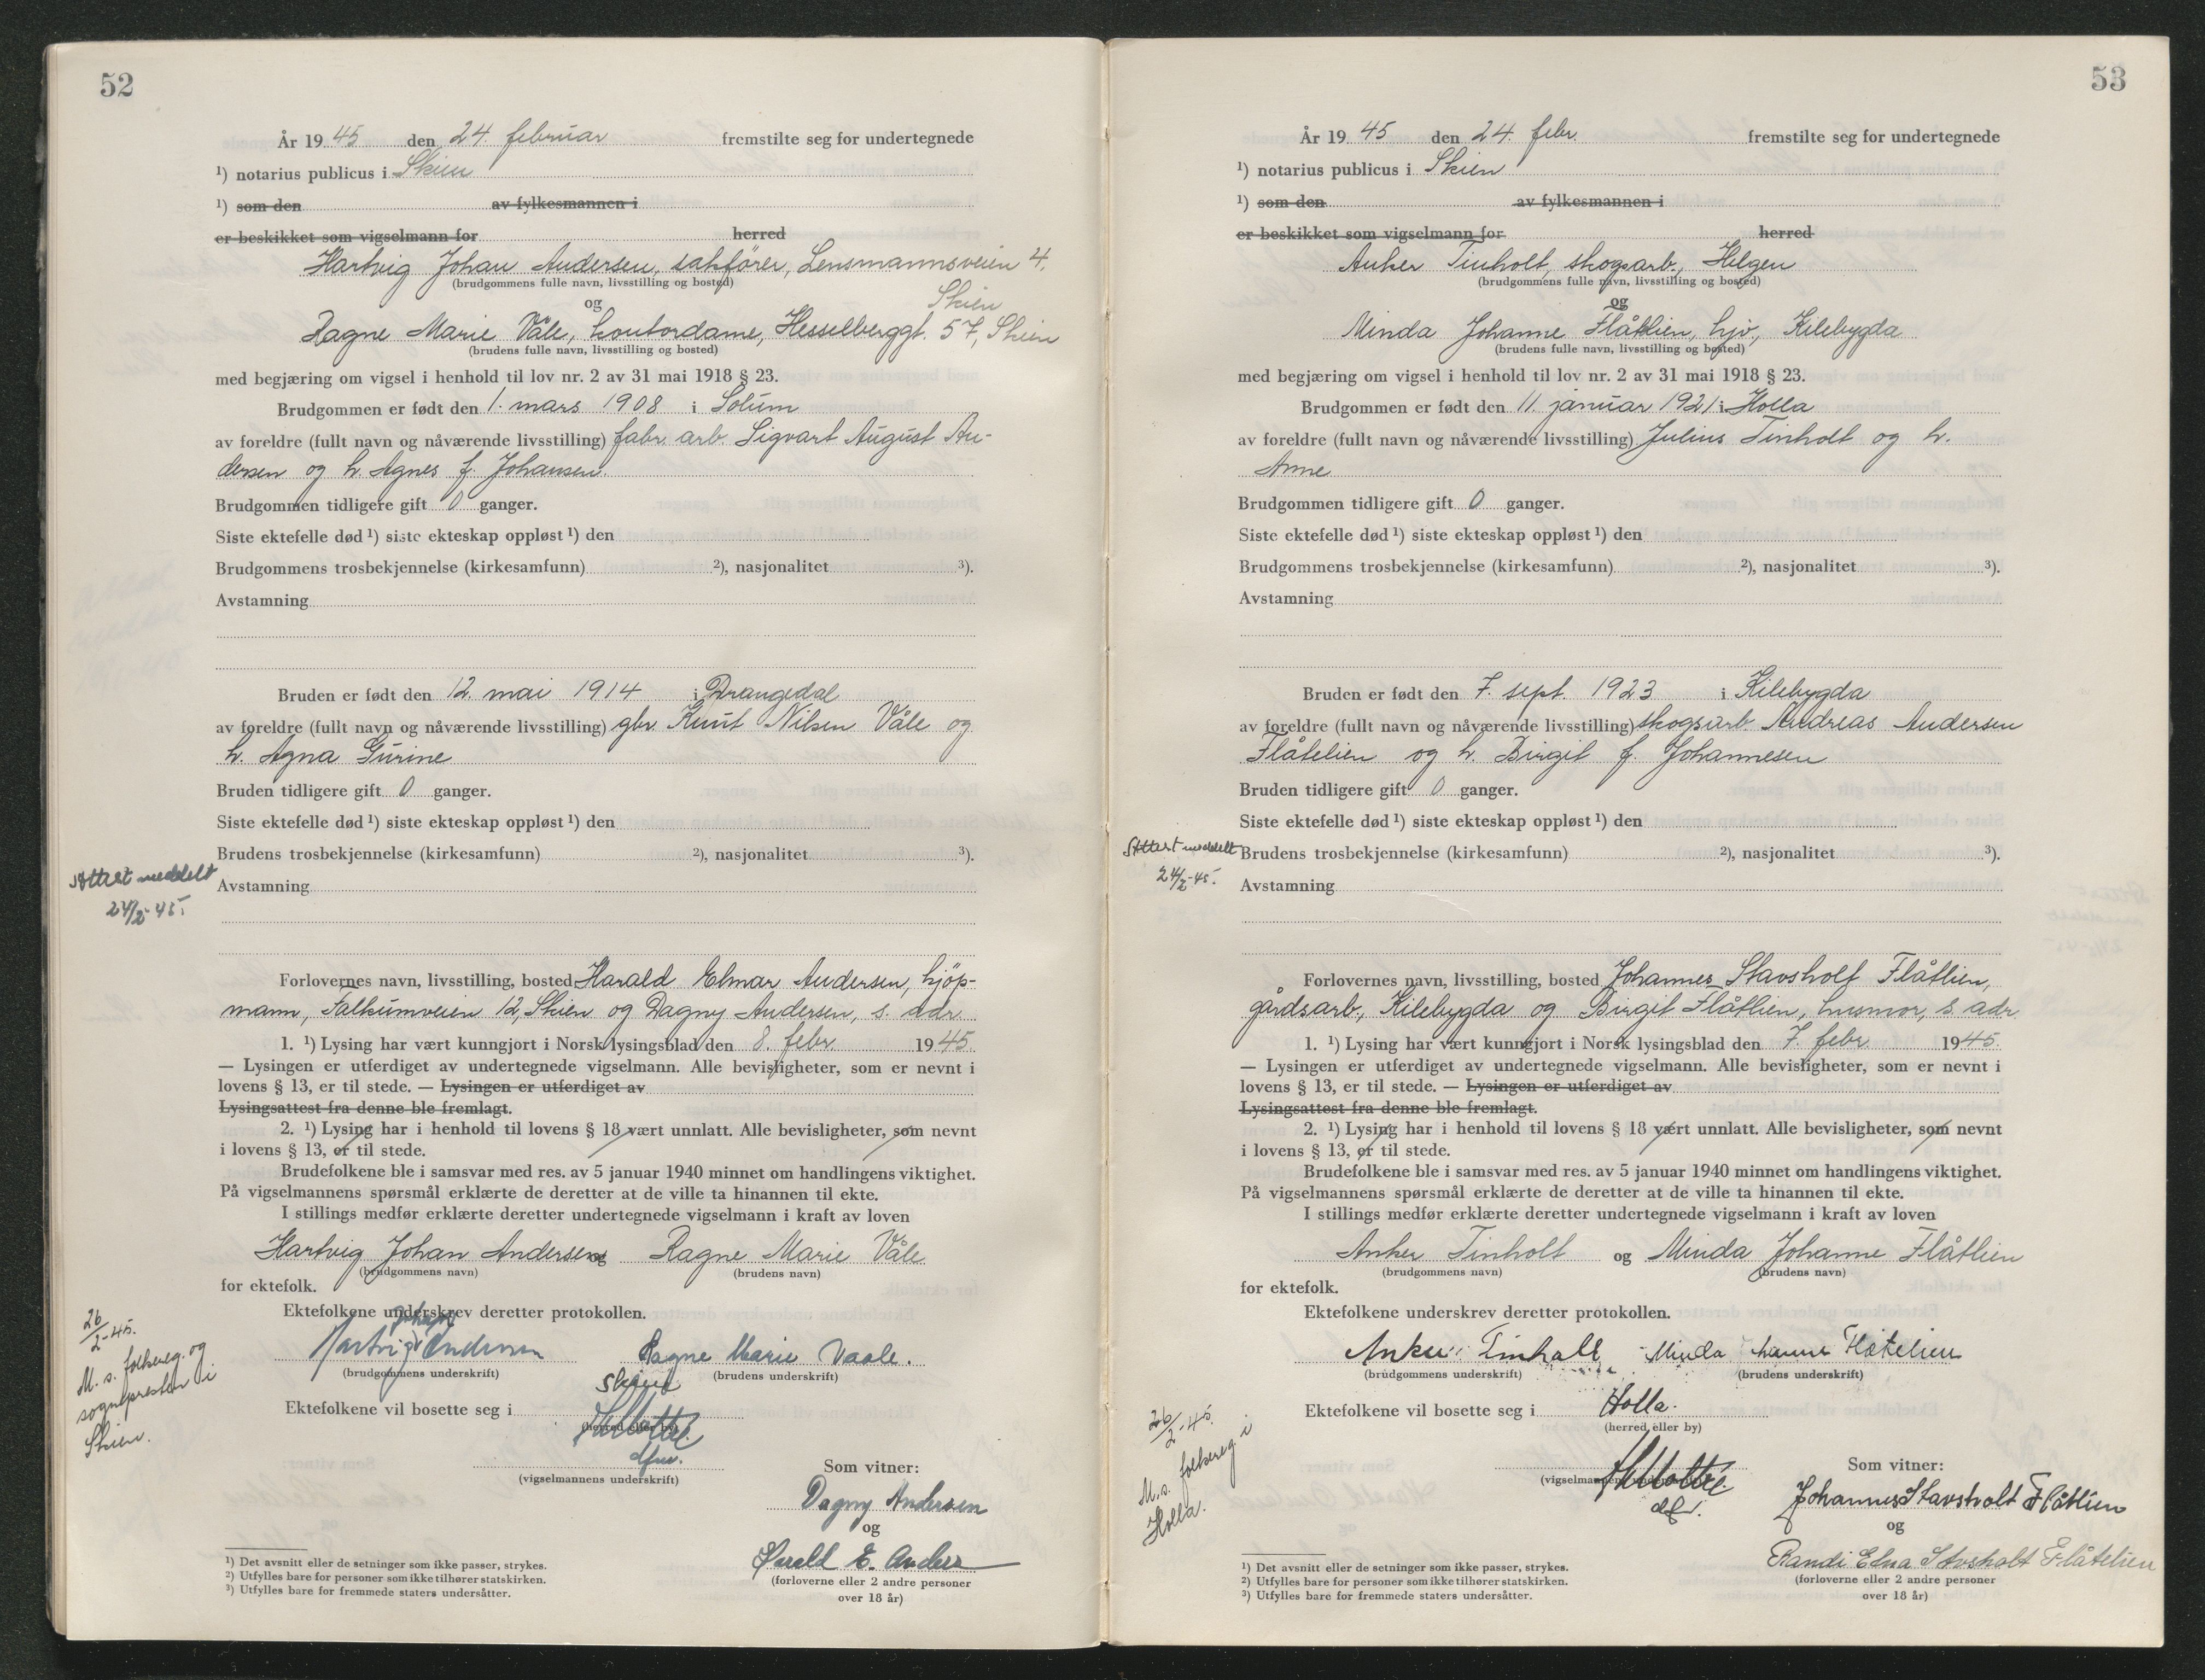 52
År 1945 den 24. februar fremstilte seg for undertegnede
¹) notarius publicus i Skien
¹) som den av fylkesmannen i
er beskikket som vigselmann for herred
Hartvig Johan Andersen, sakfører, Lensmannsveien 4,
(brudgommens fulle navn, livsstilling og bosted)
og Skien
Ragne Marie Våle, kontordame, Hesselberggt. 57, Skien
(brudens fulle navn, livsstilling og bosted)
med begjæring om vigsel i henhold til lov nr. 2 av 31 mai 1918 § 23.
Brudgommen er født den 1. mars 1908 i Solum
av foreldre (fullt navn og nåværende livsstilling) fabr. arb. Sigvart August An-
dersen og h. Agnes f. Johansen.
Brudgommen tidligere gift 0 ganger.
Siste ektefelle død ¹) siste ekteskap oppløst ¹) den
Brudgommens trosbekjennelse (kirkesamfunn) ²), nasjonalitet ³).
Avstamning
Bruden er født den 12. mai 1914 i Drangedal
av foreldre (fullt navn og nåværende livsstilling) gbr. Knut Nilsen Våle og
h. Agna Gurine
Bruden tidligere gift 0 ganger.
Siste ektefelle død ¹) siste ekteskap oppløst ¹) den
Brudens trosbekjennelse (kirkesamfunn) ²), nasjonalitet ³).
Attest meddelt
24/2-45.
Avstamning
Forlovernes navn, livsstilling, bosted Harald Elmar Andersen, kjöp-
mann, Falkumveien 12, Skien og Dagny Andersen, s. adr.
1. ¹) Lysing har vært kunngjort i Norsk lysingsblad den 8. febr. 1945
— Lysingen er utferdiget av undertegnede vigselmann. Alle bevisligheter, som er nevnt i
lovens § 13, er til stede. — Lysingen er utferdiget av
Lysingsattest fra denne ble fremlagt.
2. ¹) Lysing har i henhold til lovens § 18 vært unnlatt. Alle bevisligheter, som nevnt
i lovens § 13, er til stede.
Brudefolkene ble i samsvar med res. av 5 januar 1940 minnet om handlingens viktighet.
På vigselmannens spørsmål erklærte de deretter at de ville ta hinannen til ekte.
I stillings medfør erklærte deretter undertegnede vigselmann i kraft av loven
Hartvig Johan Andersen og Ragne Marie Våle
(brudgommens navn) (brudens navn)
for ektefolk.
Ektefolkene underskrev deretter protokollen.
Johan
Hartvig Andersen Ragne Marie Vaale.
(brudgommens underskrift) (brudens underskrift)
26/2-45.
M. s. folkereg. og
sognepresten i
Skien.
Skien
Ektefolkene vil bosette seg i
(herred eller by)
dfm.
(vigselmannens underskrift)
Som vitner:
Dagny Andersen
og
Harald E. Anders
(forloverne eller 2 andre personer
over 18 år)
¹) Det avsnitt eller de setninger som ikke passer, strykes.
²) Utfylles bare for personer som ikke tilhører statskirken.
³) Utfylles bare for fremmede staters undersåtter.
53
År 1945 den 24. febr. fremstilte seg for undertegnede
¹) notarius publicus i Skien
¹) som den av fylkesmannen i
er beskikket som vigselmann for herred
Anker Tinholt, skogsarb., Helgen
(brudgommens fulle navn, livsstilling og bosted)
og
Minda Johanne Flåtlien, hjv., Kilebygda
(brudens fulle navn, livsstilling og bosted)
med begjæring om vigsel i henhold til lov nr. 2 av 31 mai 1918 § 23.
Brudgommen er født den 11. januar 1921 i Holla
av foreldre (fullt navn og nåværende livsstilling) Julius Tinholt og h.
Anne
Brudgommen tidligere gift 0 ganger.
Siste ektefelle død ¹) siste ekteskap oppløst ¹) den
Brudgommens trosbekjennelse (kirkesamfunn) ²), nasjonalitet ³).
Avstamning
Bruden er født den 7. sept. 1923 i Kilebygda
av foreldre (fullt navn og nåværende livsstilling) skogsarb. Andreas Andersen
Flåtelien og h. Birgit f. Johannesen
Bruden tidligere gift 0 ganger.
Siste ektefelle død ¹) siste ekteskap oppløst ¹) den
Attest meddelt
24/2-45.
Brudens trosbekjennelse (kirkesamfunn) ²), nasjonalitet ³).
Avstamning
Forlovernes navn, livsstilling, bosted Johannes Stavsholt Flåtlien,
gårdsarb., Kilebygda og Birgit Flåtlien, husmor, s. adr.
1. ¹) Lysing har vært kunngjort i Norsk lysingsblad den 7. febr. 1945
— Lysingen er utferdiget av undertegnede vigselmann. Alle bevisligheter, som er nevnt i
lovens § 13, er til stede. — Lysingen er utferdiget av
Lysingsattest fra denne ble fremlagt.
2. ¹) Lysing har i henhold til lovens § 18 vært unnlatt. Alle bevisligheter, som nevnt
i lovens § 13, er til stede.
Brudefolkene ble i samsvar med res. av 5 januar 1940 minnet om handlingens viktighet.
På vigselmannens spørsmål erklærte de deretter at de ville ta hinannen til ekte.
I stillings medfør erklærte deretter undertegnede vigselmann i kraft av loven
Anker Tinholt og Minda Johanne Flåtlien
(brudgommens navn) (brudens navn)
for ektefolk.
Ektefolkene underskrev deretter protokollen.
Anker Tinholt Minda hanne Flåtelien
(brudgommens underskrift) (brudens underskrift)
26/2-45.
M. s. folkereg. i
Holla.
Ektefolkene vil bosette seg i Holla.
(herred eller by)
(vigselmannens underskrift)
Som vitner:
Johannes Stavsholt Flåtlien
og
Randi Edna Stvsholt Flåtelien
(forloverne eller 2 andre personer
over 18 år)
¹) Det avsnitt eller de setninger som ikke passer, strykes.
²) Utfylles bare for personer som ikke tilhører statskirken.
³) Utfylles bare for fremmede staters undersåtter.